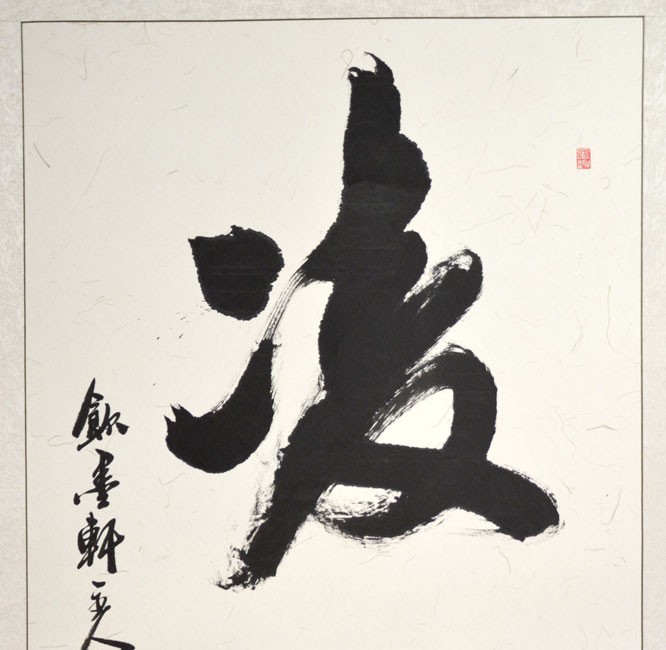 凌
飲墨軒主人